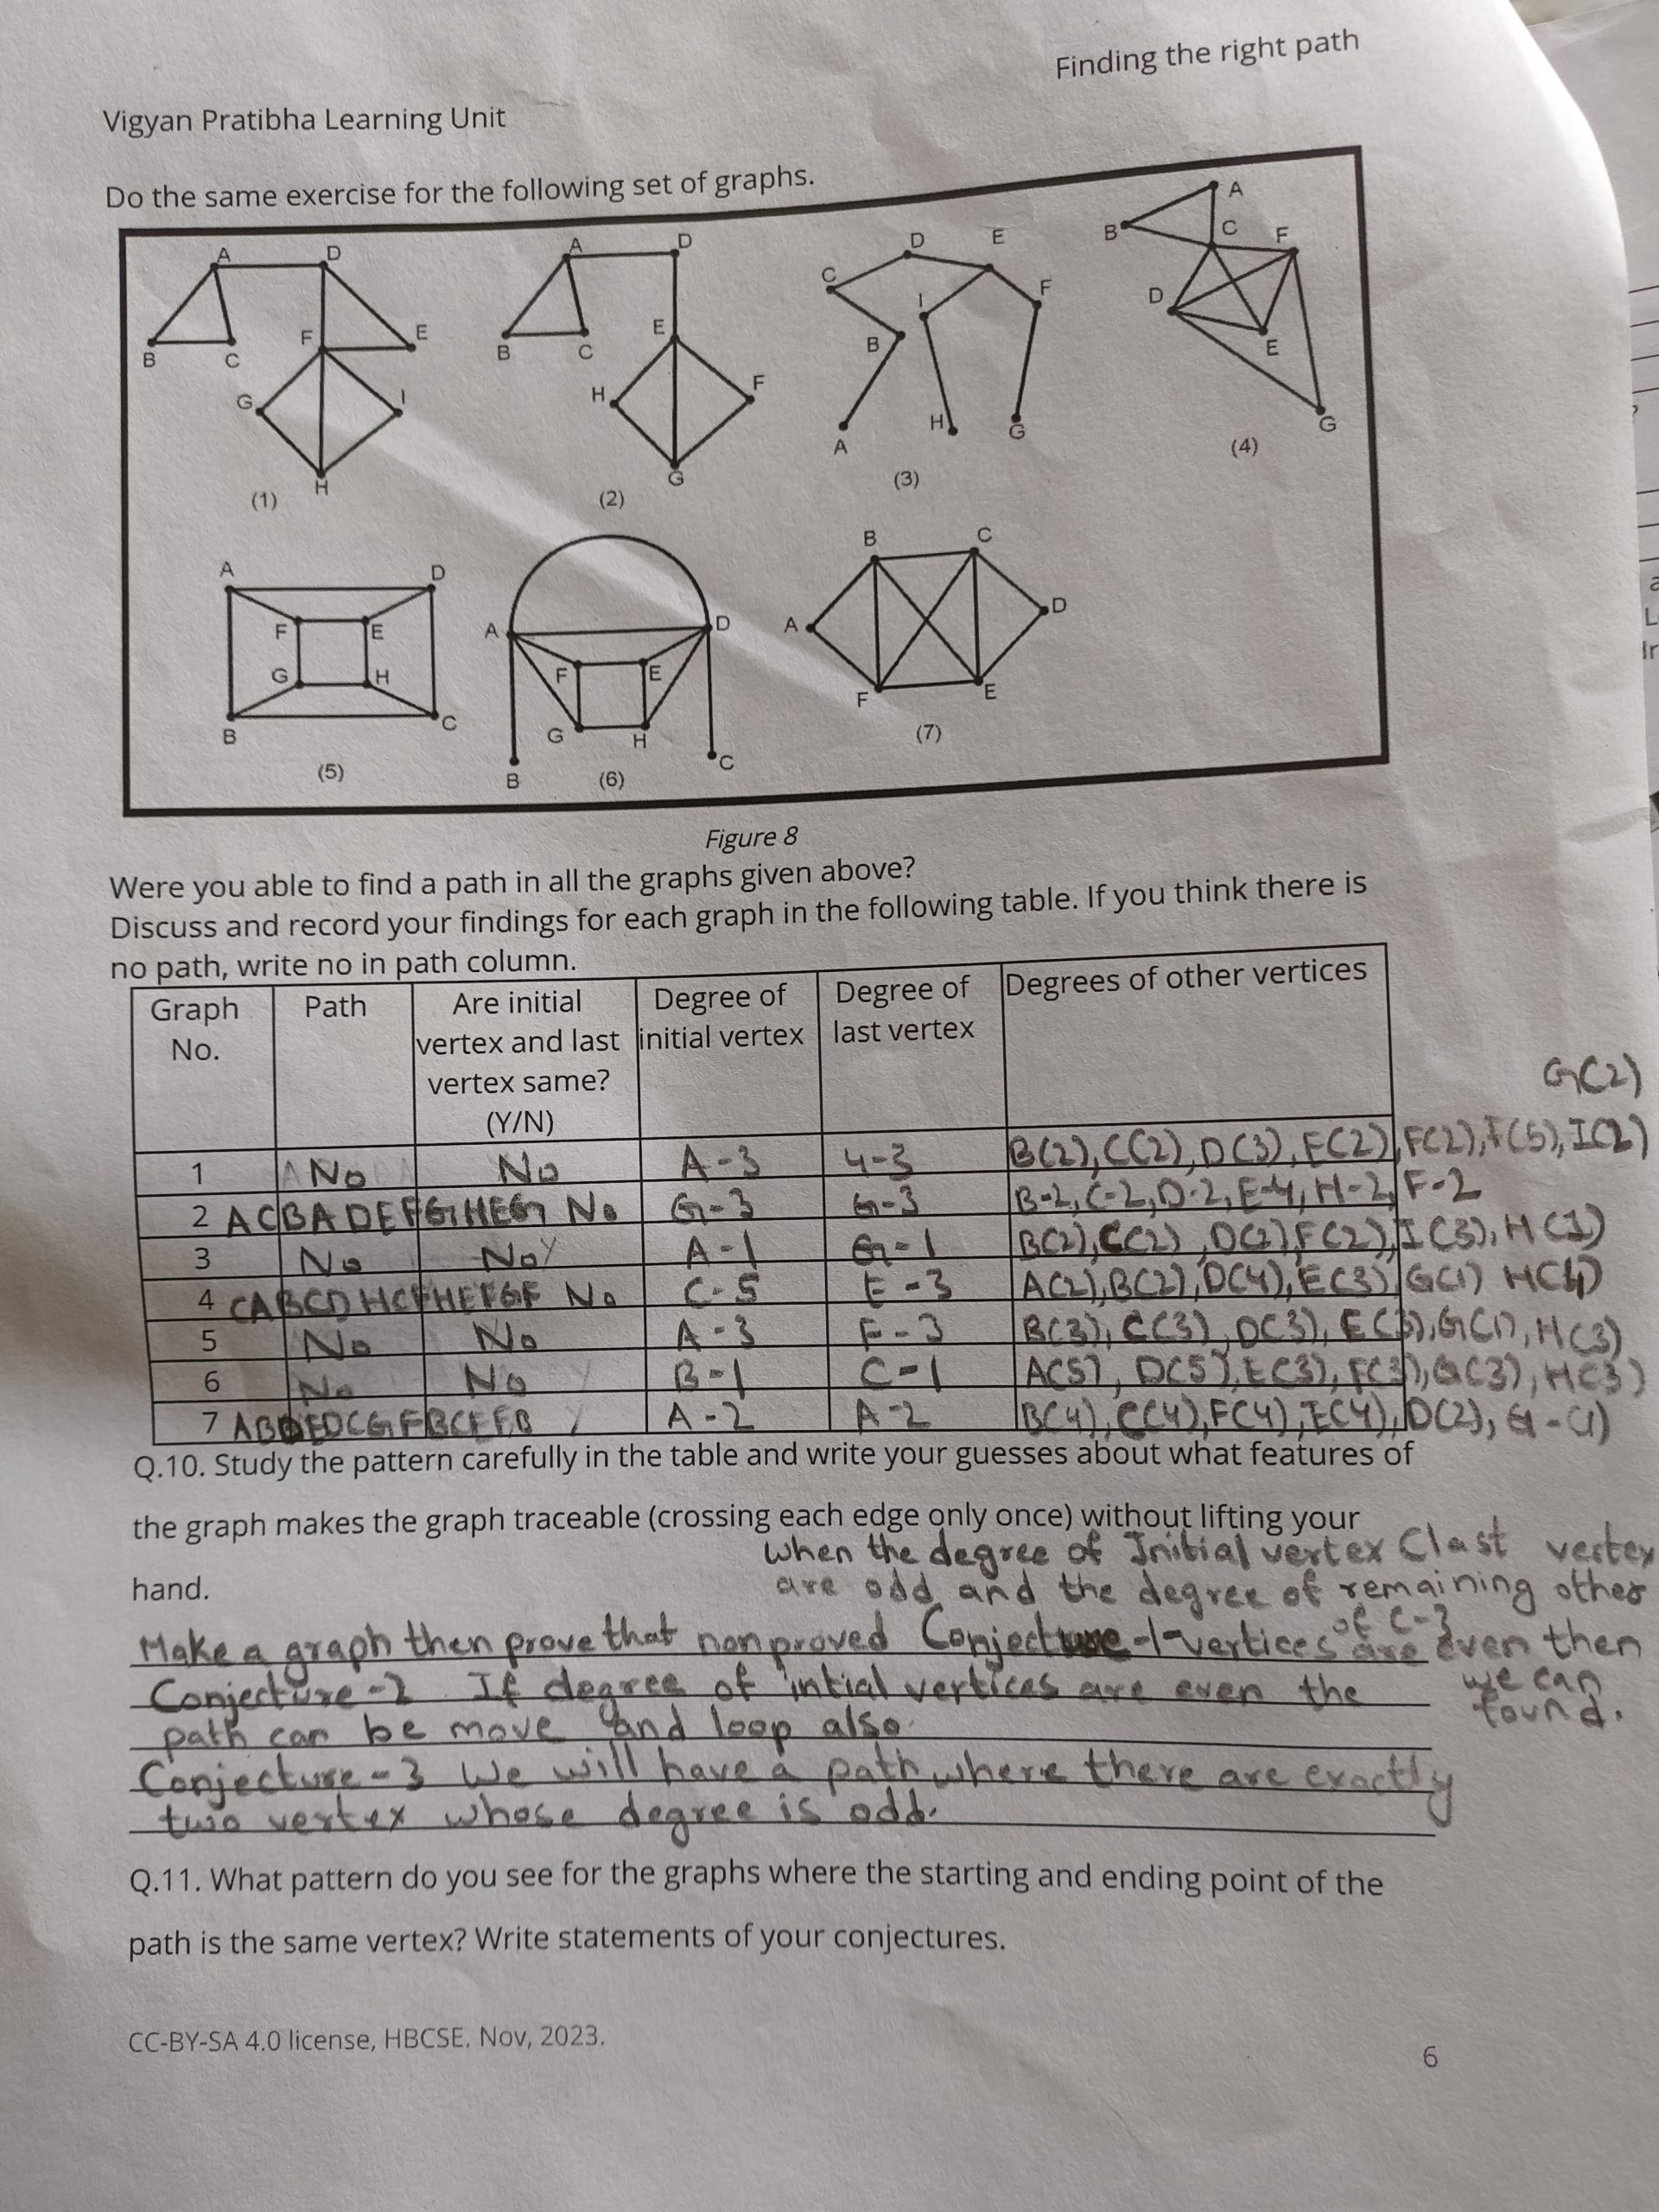 Finding the right path
Vigyan Pratibha Learning Unit
Do the same exercise for the following set of graphs.
A D B C F E G I H (1)
A D B C E H F G (2)
D E C F I B A H G (3)
A B C F D E G (4)
A D F E G H B C (5)
A D F E G H B C (6)
B C A D F E (7)
Figure 8
Were you able to find a path in all the graphs given above?
Discuss and record your findings for each graph in the following table. If you think there is
no path, write no in path column.
Graph No. Path Are initial vertex and last vertex same? (Y/N) Degree of initial vertex Degree of last vertex Degrees of other vertices
G(2)
1 No No A-3 4-3 B(2), C(2), D(3), E(2), F(2), F(5), I(2)
2 ACBADEFGHEG No G-3 G-3 B-2, C-2, D-2, E-4, H-2, F-2
3 No No Y A-1 G-1 B(2), C(2), D(2), F(2), I(3), H(1)
4 CABCDHCFHEFGF No C-5 E-3 A(2), B(2), D(4), E(3), G(1) H(4)
5 No No A-3 F-3 B(3), C(3), D(3), E(3), G(1), H(3)
6 No No B-1 C-1 A(5), D(5), E(3), F(3), G(3), H(3)
7 Y A-2 A-2 B(4), C(4), F(4), E(4), D(2), G-(1)
Q.10. Study the pattern carefully in the table and write your guesses about what features of
the graph makes the graph traceable (crossing each edge only once) without lifting your
hand.
when the degree of Initial vertex Clast vertex
are odd and the degree of remaining other
of C-3
Make a graph then prove that nonproved Conjecture-1-vertices are even then
we can
found.
Conjecture-2 If degree of intial vertices are even the
path can be move and loop also.
Conjecture-3 We will have a path where there are exactly
two vertex whose degree is odd.
Q.11. What pattern do you see for the graphs where the starting and ending point of the
path is the same vertex? Write statements of your conjectures.
CC-BY-SA 4.0 license, HBCSE. Nov, 2023.
6